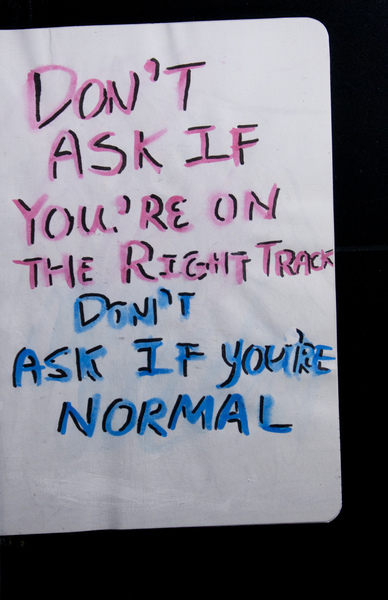 DON'T
ASK IF
YOU'RE ON
THE RIGHT TRACK
DON'T
ASK IF YOU'RE
NORMAL